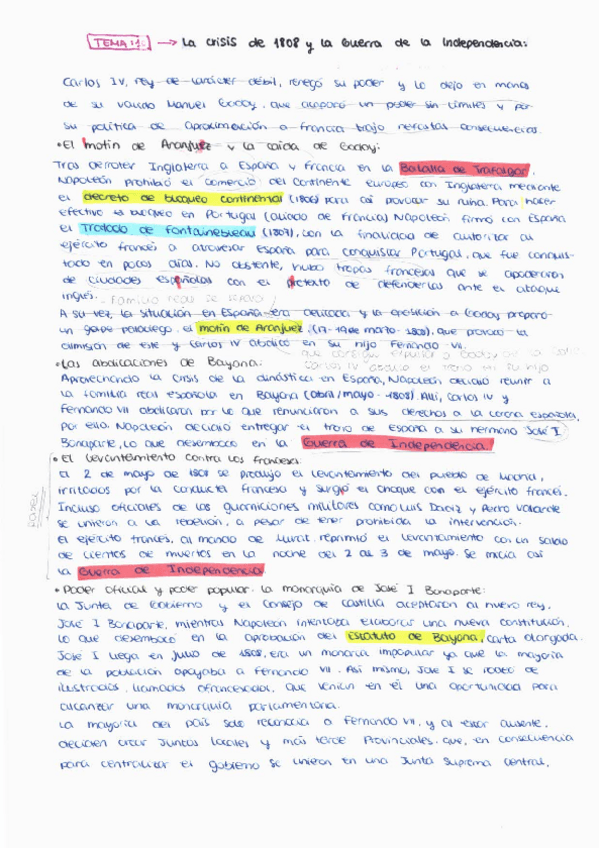 TEMA 1: → La crisis de 1808 y la Guerra de la Independencia:
Carlos IV, rey de carácter débil, renegó su poder y lo dejo en manos
de su valido Manuel Godoy, que acaparó un poder sin límites y por
su política de aproximación a Francia trajo nefastas consecuencias.
• El motín de Aranjuez y la caída de Godoy:
Tras derrotar Inglaterra a España y Francia en la Batalla de Trafalgar,
Napoleón prohibió el comercio del continente europeo con Inglaterra mediante
el decreto de bloqueo continental (1806) para así provocar su ruina. Para hacer
efectivo el bloqueo en Portugal (aliado de Francia) Napoleón firmó con España
el Tratado de Fontainebleau (1807), con la finalidad de autorizar al
ejército francés a atravesar España para conquistar Portugal, que fue conquis-
tado en pocos días. No obstante, hubo tropas francesas que se apoderaron
de ciudades españolas con el pretexto de defenderlas ante el ataque
inglés. Familia real se
A su vez, la situación en España era delicada y la oposición a Godoy preparó
un golpe palaciego. el motín de Aranjuez (17-19 de marzo 1808), que provocó la
dimisión de este y Carlos IV abdicó en su hijo Fernando VII.
que consigue expulsar a Godoy de la
Carlos IV abdica el trono en su hijo
• Las abdicaciones de Bayona:
Aprovechando la crisis de la dinástia en España, Napoleón decidió reunir a
la familia real española en Bayona (abril/mayo - 1808). Allí, Carlos IV y
Fernando VII abdicaron por lo que renunciaron a sus derechos a la corona española.
Por ello, Napoleón decidió entregar el trono de España a su hermano José I
Bonaparte, lo que desembocó en la Guerra de Independencia.
• El levantamiento contra los franceses:
El 2 de mayo de 1808 se produjo el levantamiento del pueblo de Madrid,
irritados por la conducta francesa y surgió el choque con el ejército francés.
Incluso oficiales de las guarniciones militares como Luis Daoiz y Pedro Velarde
se unieron a la rebelión, a pesar de tener prohibida la intervención.
El ejército francés, al mando de Murat, reprimió el levantamiento con un saldo
de cientos de muertos en la noche del 2 al 3 de mayo. Se inicia así
la Guerra de Independencia
• Poder oficial y poder popular. La monarquía de José I Bonaparte:
La Junta de Gobierno y el Consejo de Castilla aceptaron al nuevo rey,
José I Bonaparte, mientras Napoleón intentaba elaborar una nueva constitución,
lo que desembocó en la aprobación del Estatuto de Bayona, carta otorgada.
José I llega en julio de 1808, era un monarca impopular ya que la mayoría
de la población apoyaba a Fernando VII. Así mismo, José I se rodeó de
ilustrados, llamados afrancesados, que veían en él una oportunidad para
alcanzar una monarquía parlamentaria.
La mayoría del país solo reconocía a Fernando VII, y al estar ausente,
deciden crear Juntas locales y más tarde Provinciales. que, en consecuencia
para centralizar el gobierno se unieron en una Junta Suprema Central,